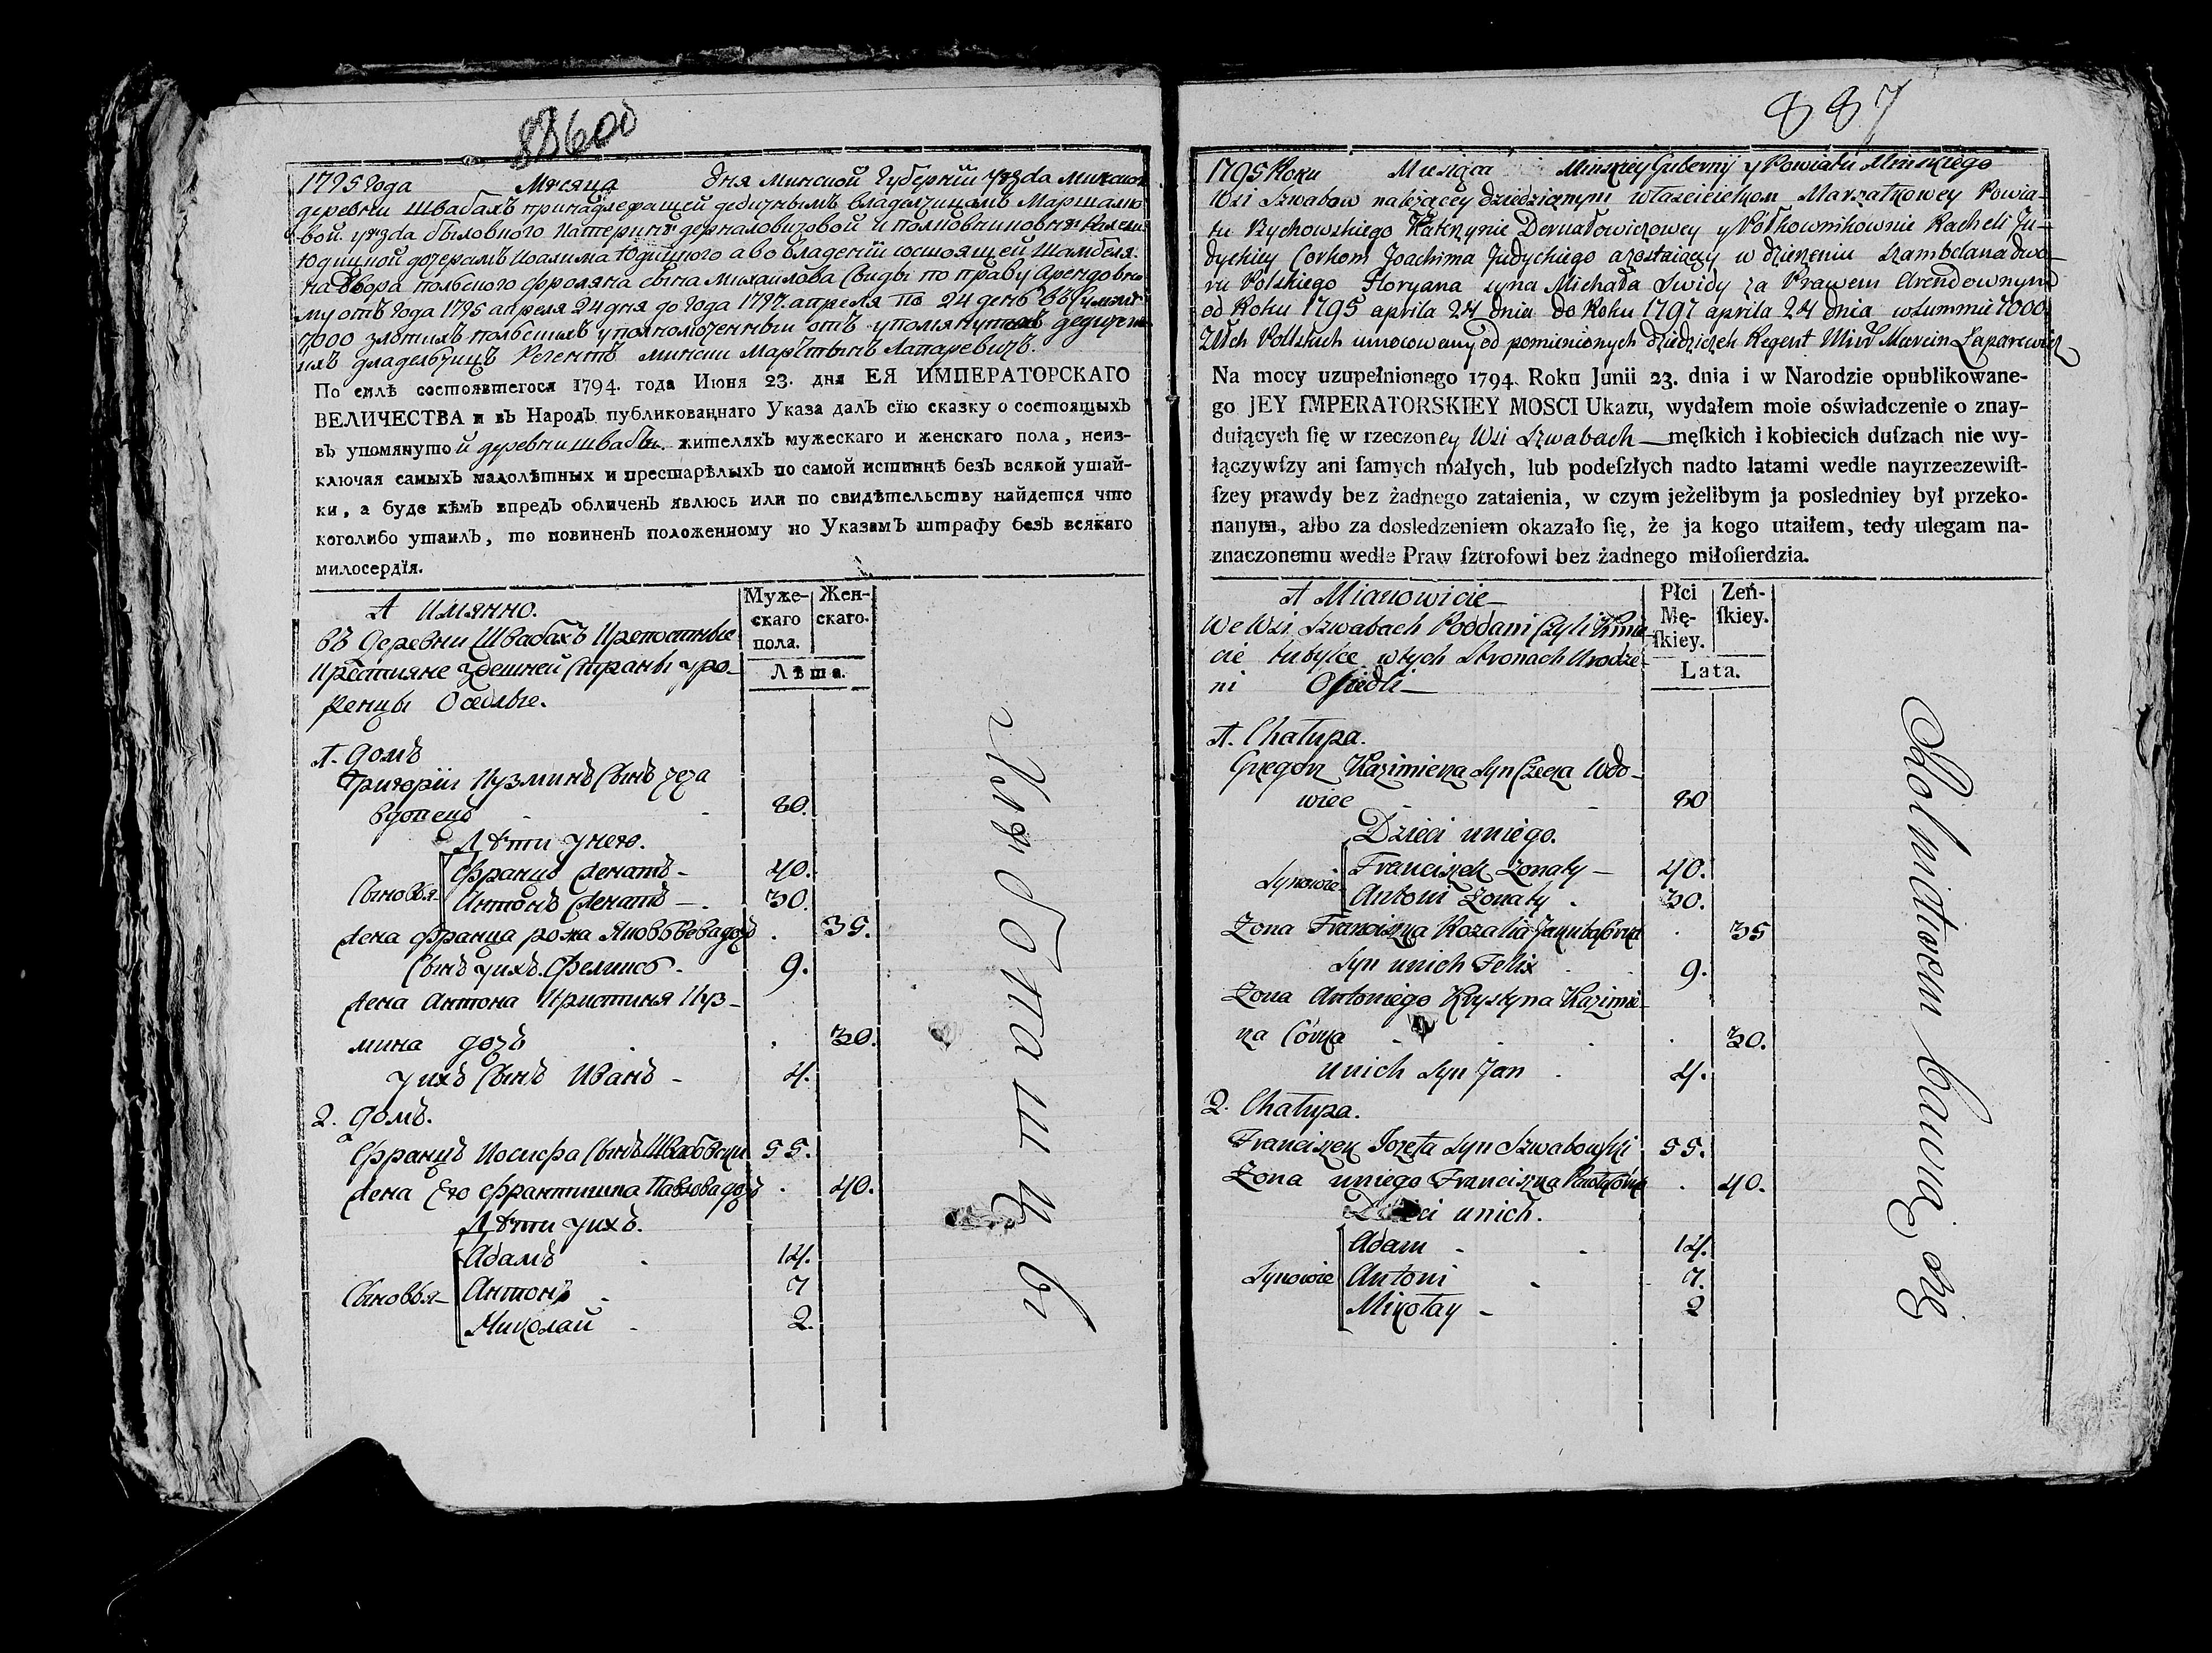 88600
1795 Года Месяца дня Минской Губернїи уезда Минского
деревни Швабахъ принадлежащей дедичнымъ владелчицамъ Маршалко
вой уезда быховского Катерине Дерналовичовой и полковниковне Рахели
Юдицкой дочерамъ Иоахима Юдицкого а во владенїи состоящей Шамбеля
на двора польского Флоряна сына Михайлова Свиды по праву Арендовно
му отъ Года 1795 апреля 24 дня до Года 1797 апреля по 24 день въ Сумме
7000 злотихъ польскихъ уполномоченный отъ упомянутыхъ дедичн
ихъ владельчицъ Регентъ Мински Марътынъ Лапаревичъ.
По силѣ состоявшегося 1794. года Июня 23. дня ЕЯ ИМПЕРАТОРСКАГО
ВЕЛИЧЕСТВА и въ Народъ публикованнаго Указа далъ сїю сказку о состоящыхъ
въ упомянутой деревни швабы. жителяхъ мужескаго и женскаго пола, неиз-
ключая самыхъ малолѣтныхъ и престарѣлыхъ по самой истиннѣ безъ всякой утай-
ки, а буде кѣмъ впредъ обличенъ явлюсь или по свидѣтельству найдется что
коголибо утаилъ, то повиненъ положенному по Указамъ штрафу безъ всякаго
милосердїя.
А имянно.
Муже-
скаго
пола.
Жен-
скаго.
Лѣта.
въ Деревни Швабахъ Крепостные
Крестияне здешней Страны уро
женцы Оседлые.
1. Домъ
Григорїи Кузминъ Сынъ Чеза
вдовецъ 80.
Дети у него.
Сыновья
Францъ женатъ - 40.
Антонъ женатъ - 30.
жена Франца рожа Яковлева дочь 35.
Сынъ у ихъ Феликсъ 9.
жена Антона Кристиня Куз-
мина дочь 30.
у ихъ Сынъ Иванъ - 4.
2. Домъ.
Францъ Иосифа Сынъ Швабовски 55.
жена Его Франтишка Павлова дочь 40.
Дети у ихъ.
Сыновья
Адамъ 14.
Антонъ 7
Николай 2.
887
1795 Roku Miesiąca Minskiey Gubernij y Powiatu Minskiego
Wsi Szwabow należącey dziedzicznym właścicielkom Marszałkowey Powia-
tu Rzychowskiego Katerzynie Dernałowiczowey y Półkownikownie Racheli Ju-
dyckiey Corkom Joachima Judyckiego a zostaiącey w dzierżeniu szambelana dwo-
ru Polskiego Floryana syna Michała Swidy za Prawem Arendownym
od Roku 1795 aprila 24 dnia do Roku 1797 aprila 24 dnia w Summie 7000
Złłch Polskich umocowany od pomienionych dziedziczek Regent Miń Marcin Łaparewicz
Na mocy uzupełnionego 1794. Roku Junii 23. dnia i w Narodzie opublikowane-
go JEY IMPERATORSKIEY MOSCI Ukazu, wydałem moie oświadczenie o znay-
duiących ſię w rzeczoney Wsi Szwabach męſkich i kobiecich duſzach nie wy-
łączywſzy ani ſamych małych, lub podeſzłych nadto latami wedle nayrzeczewiſt-
ſzey prawdy bez żadnego zataienia, w czym jeżelibym ja posledniey był przeko-
nanym, albo za dosledzeniem okazało ſię, że ja kogo utaiłem, tedy ulegam na-
znaczonemu wedle Praw ſztrofowi bez żadnego miłoſierdzia.
A Mianowicie
Płci
Mę-
ſkiey.
Zeń-
ſkiey.
Lata.
We Wsi Szwabach Poddani Czyli Kmie
cie tubylce w tych Stronach Urodze-
ni Osiedli
1. Chałupa.
Grzegorz Kazimierza Syn Czeza Wdo-
wiec 80
Dzieci u niego.
Synowie
Franciszek Żonaty - 40.
Antoni Żonaty 30.
Żona Franciszka Rozalia Jakuba Córka 35
Syn u nich Felix 9.
Żona Antoniego Krystyna Kazimie-
rza Córka 30.
u nich Syn Jan 4.
2. Chałupa.
Franciszek Jozefa Syn Szwabowski 55.
Żona u niego Franciszka Pawła Córka 40.
Dzieci u nich.
Synowie
Adam 14.
Antoni 7.
Mikołay 2